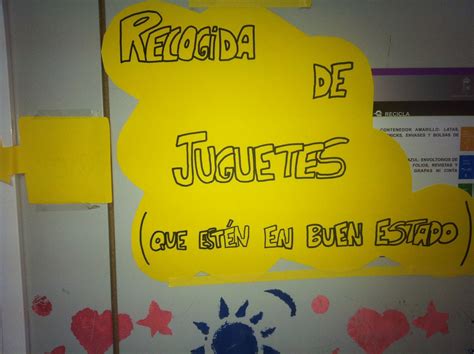 RECOGIDA
DE
JUGUETES
(QUE ESTÉN EN BUEN ESTADO)
RECICLA
CONTENEDOR AMARILLO: LATAS,
BRICKS, ENVASES Y BOLSAS DE
AZUL: ENVOLTORIOS DE
FOLIOS, REVISTAS Y
GRAPAS NI CINTA